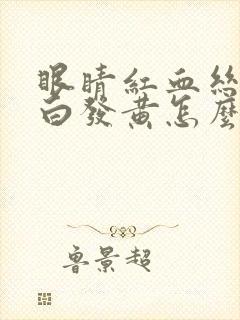 眼睛紅血絲
白發黃怎麼
魯景超